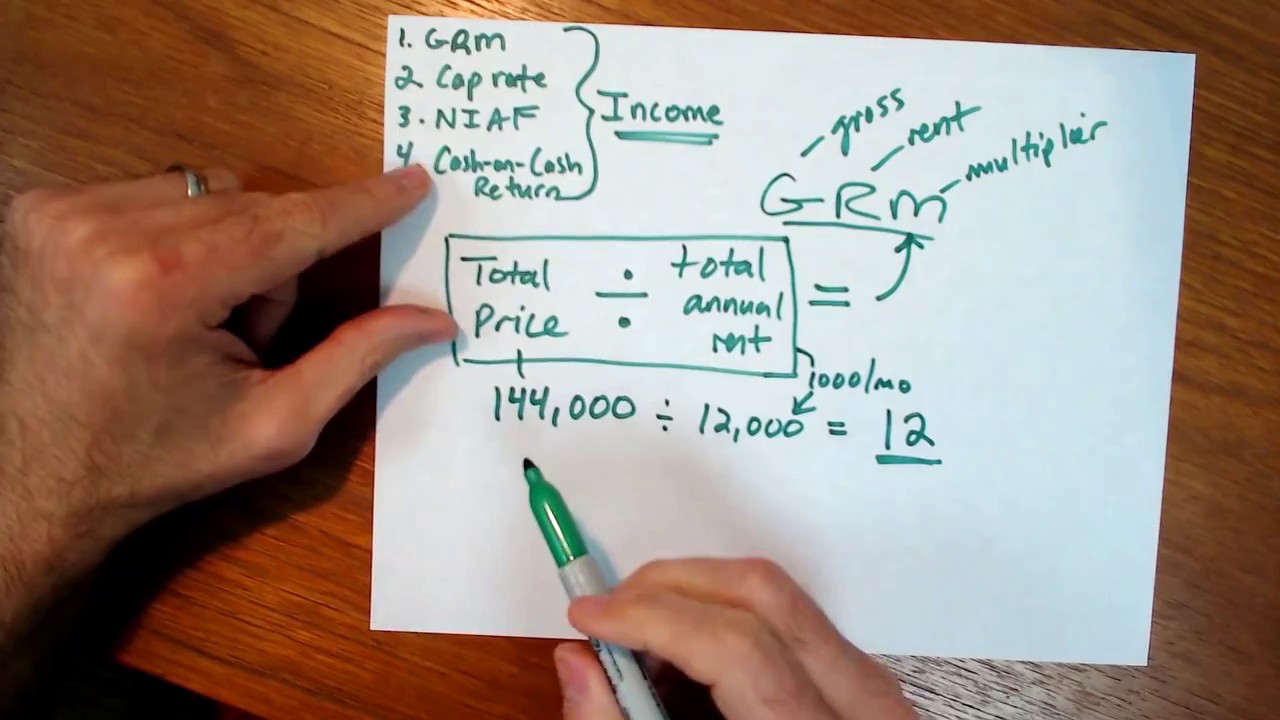 1. GRM
2. Cap rate
3. NIAF
4. Cash-on-Cash
Return
Income
gross
rent
multiplier
GRM
Total ÷ total
Price annual
rent
=
1000/mo
144,000 ÷ 12,000 = 12